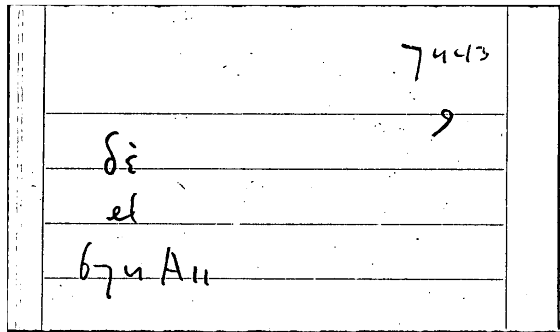 7443
9
δὲ
et
674 A11